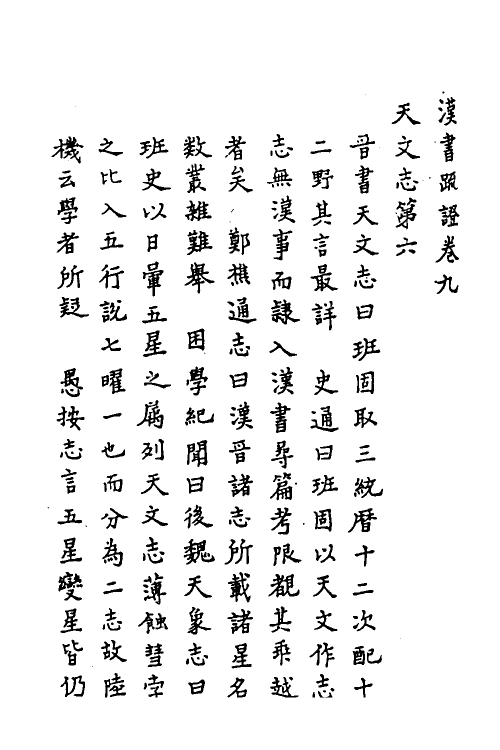 漢書疏證卷九
天文志第六
晉書天文志曰班固取三統暦十二次配十
二野其言最詳　史通曰班固以天文作志
志無漢事而隷入漢書尋篇考限覩其乖越
者矣　鄭樵通志曰漢晉諸志所載諸星名
数叢雜難舉　困學紀聞曰後魏天象志曰
班史以日暈五星之属列天文志薄蝕彗孛
之比入五行說七曜一也而分為二志故陸
機云學者所疑　愚按志言五星變星皆仍